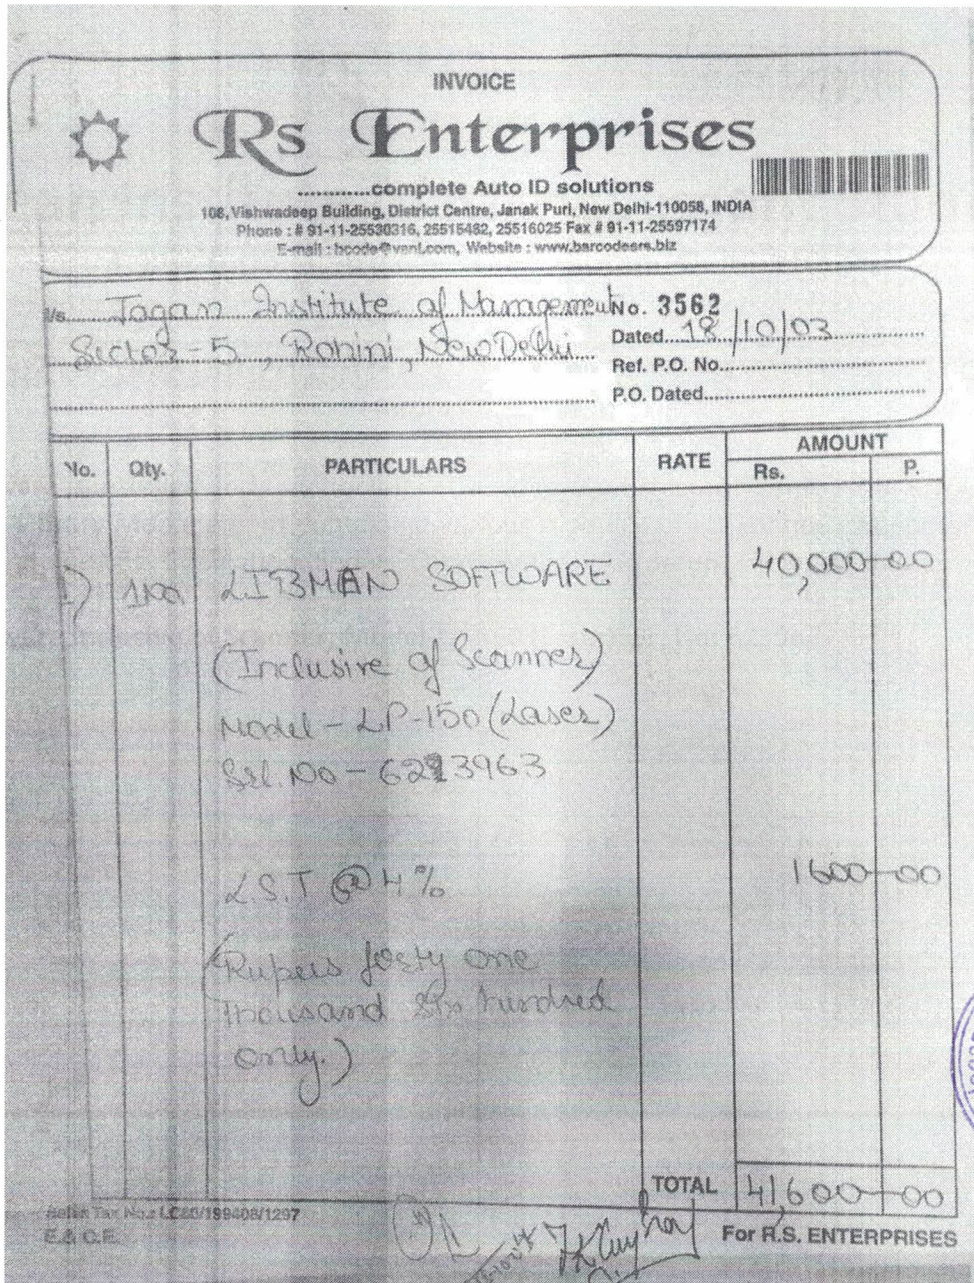 INVOICE
Rs Enterprises
............complete Auto ID solutions
108, Vishwadeep Building, District Centre, Janak Puri, New Delhi-110058, INDIA
Phone : # 91-11-25530316, 25515482, 25516025 Fax # 91-11-25597174
E-mail : bcode@vsnl.com, Website : www.barcodesrs.biz
Jagan Institute of Management No. 3562
Sector - 5, Rohini, New Delhi Dated 18/10/03
Ref. P.O. No.
P.O. Dated
No. Qty. PARTICULARS RATE AMOUNT
Rs. P.
1) 1No. LIBMAN SOFTWARE 40,000-00
(Inclusive of Scanner)
Model - LP-150 (Laser)
Srl. No - 6213963
L.S.T @ 4% 1600-00
(Rupees forty one
thousand six hundred
only.)
TOTAL 41,600-00
Sales Tax No.: LC60/199408/1297
E.& O.E. For R.S. ENTERPRISES